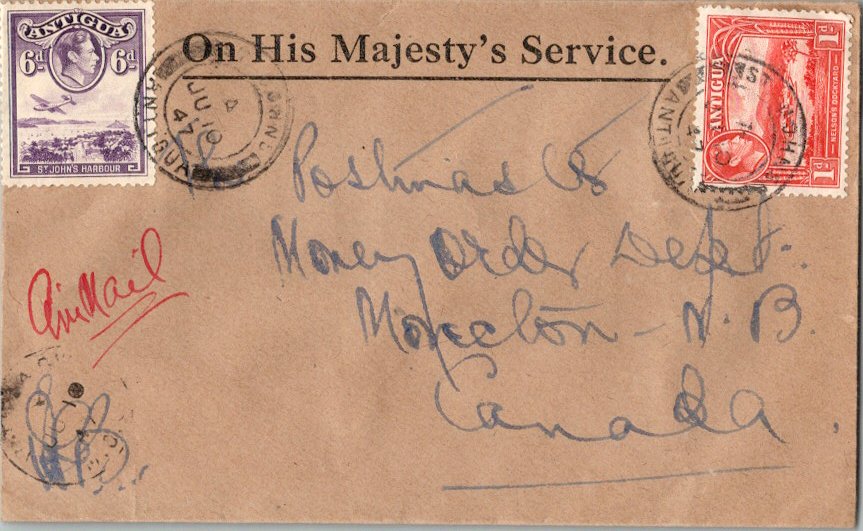 ANTIGUA
6d 6d
ST JOHN'S HARBOUR
On His Majesty's Service.
1d
ANTIGUA
NELSON'S DOCKYARD
1d
JU 10
47
A
Postmaster
Money Order Dept.
Moncton - N.B.
Canada
Air Mail